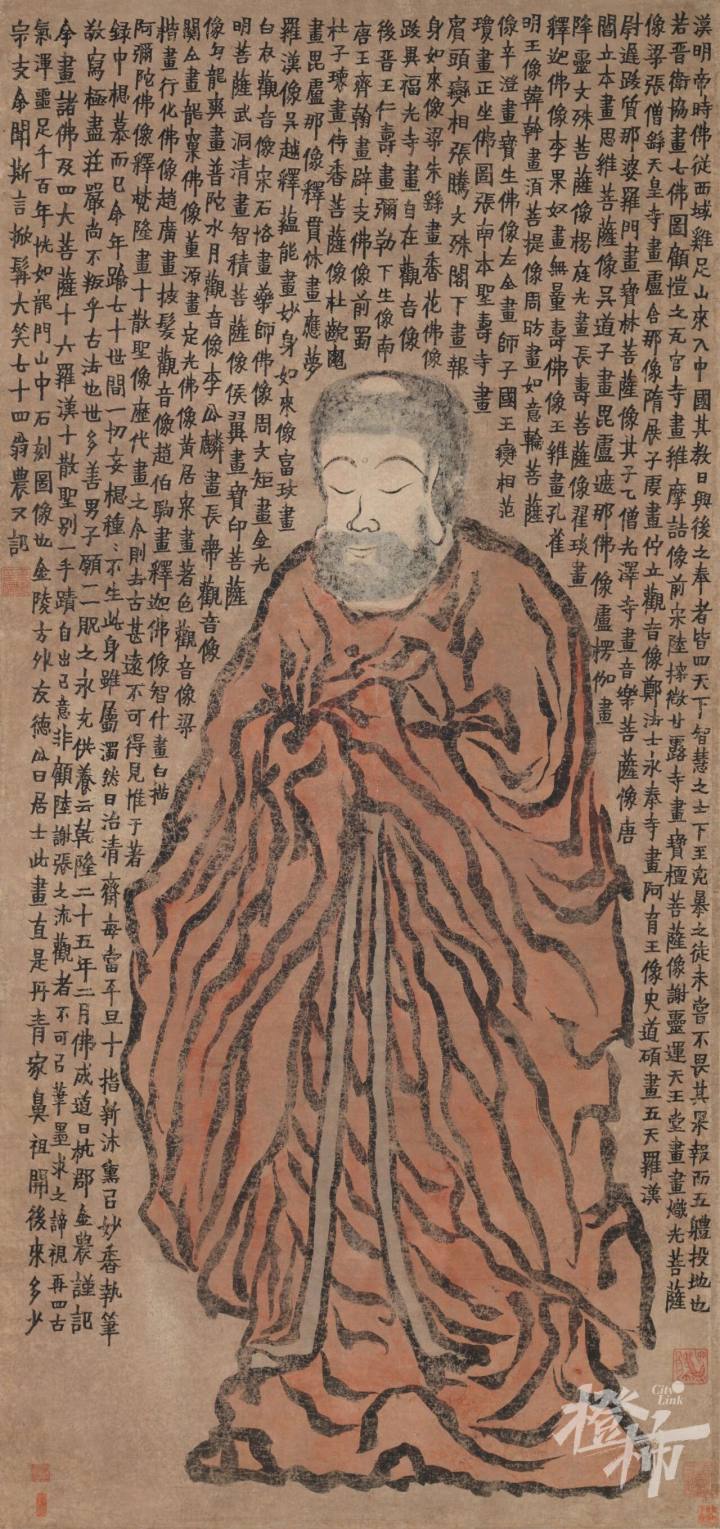 漢明帝時佛從西域雞足山來入中國其教日興後之奉者皆四天下智慧之士下至兇暴之徒未嘗不畏其果報而五體投地也
若晉衛協畫七佛圖顧愷之瓦官寺畫維摩詰像前宋陸探微甘露寺畫寶檀菩薩像謝靈運天王堂畫畫熾光菩薩
像梁張僧繇天皇寺畫盧舍那像隋展子虔畫佇立觀音像鄭法士永泰寺畫阿育王像史道碩畫五天羅漢
尉遲跋質那婆羅門畫寶林菩薩像其子乙僧光澤寺畫音樂菩薩像唐
閻立本畫思維菩薩像吳道子畫毘盧遮那佛像盧楞伽畫
降靈文殊菩薩像楊庭光畫長壽菩薩像翟琰畫
釋迦佛像李果奴畫無量壽佛像王維畫孔雀
明王像韓幹畫須菩提像周昉畫如意輪菩薩
像辛澄畫寶生佛像左全畫師子國王變相范
瓊畫正坐佛圖張南本聖壽寺畫
賓頭變相張騰文殊閣下畫報
身如來像梁朱繇畫香花佛像
跋異福光寺畫自在觀音像
後晉王仁壽畫彌勒下生像南
唐王齊翰畫辟支佛像前蜀
杜子瓌畫侍香菩薩像杜齯龜
畫毘盧那像釋貫休畫應夢
羅漢像吳越釋蘊能畫妙身如來像富玫畫
白衣觀音像宋石恪畫藥師佛像周文矩畫金光
明菩薩武洞清畫智積菩薩像侯翼畫寶印菩薩
像勾龍爽畫普陀水月觀音像李公麟畫長帶觀音像
關仝畫龍窠佛像董源畫定光佛像黃居寀畫著色觀音像梁
楷畫行化佛像趙廣畫披髮觀音像趙伯駒畫釋迦佛像智什畫白描
阿彌陀佛像釋梵隆畫十散聖像歷代畫之今則去古甚遠不可得見惟于著
録中想慕而已今年踰七十世間一切妄想種〻不生此身雖屬濁然日治清齋每當平旦十指新沐熏以妙香執筆
敬寫極盡莊嚴尚不叛乎古法也世多善男子願一貺之永充供養云乾隆二十五年二月佛成道日杭郡金農謹記
余畫諸佛及四大菩薩十六羅漢十散聖別一手蹟自出己意非顧陸謝張之流觀者不可以筆墨求之諦視再四古
氣渾噩足千百年恍如龍門山中石刻圖像也金陵方外友德公曰居士此畫直是丹青家鼻祖開後來多少
宗支余聞斯言掀髯大笑七十四翁農又記
City Link
橙柿